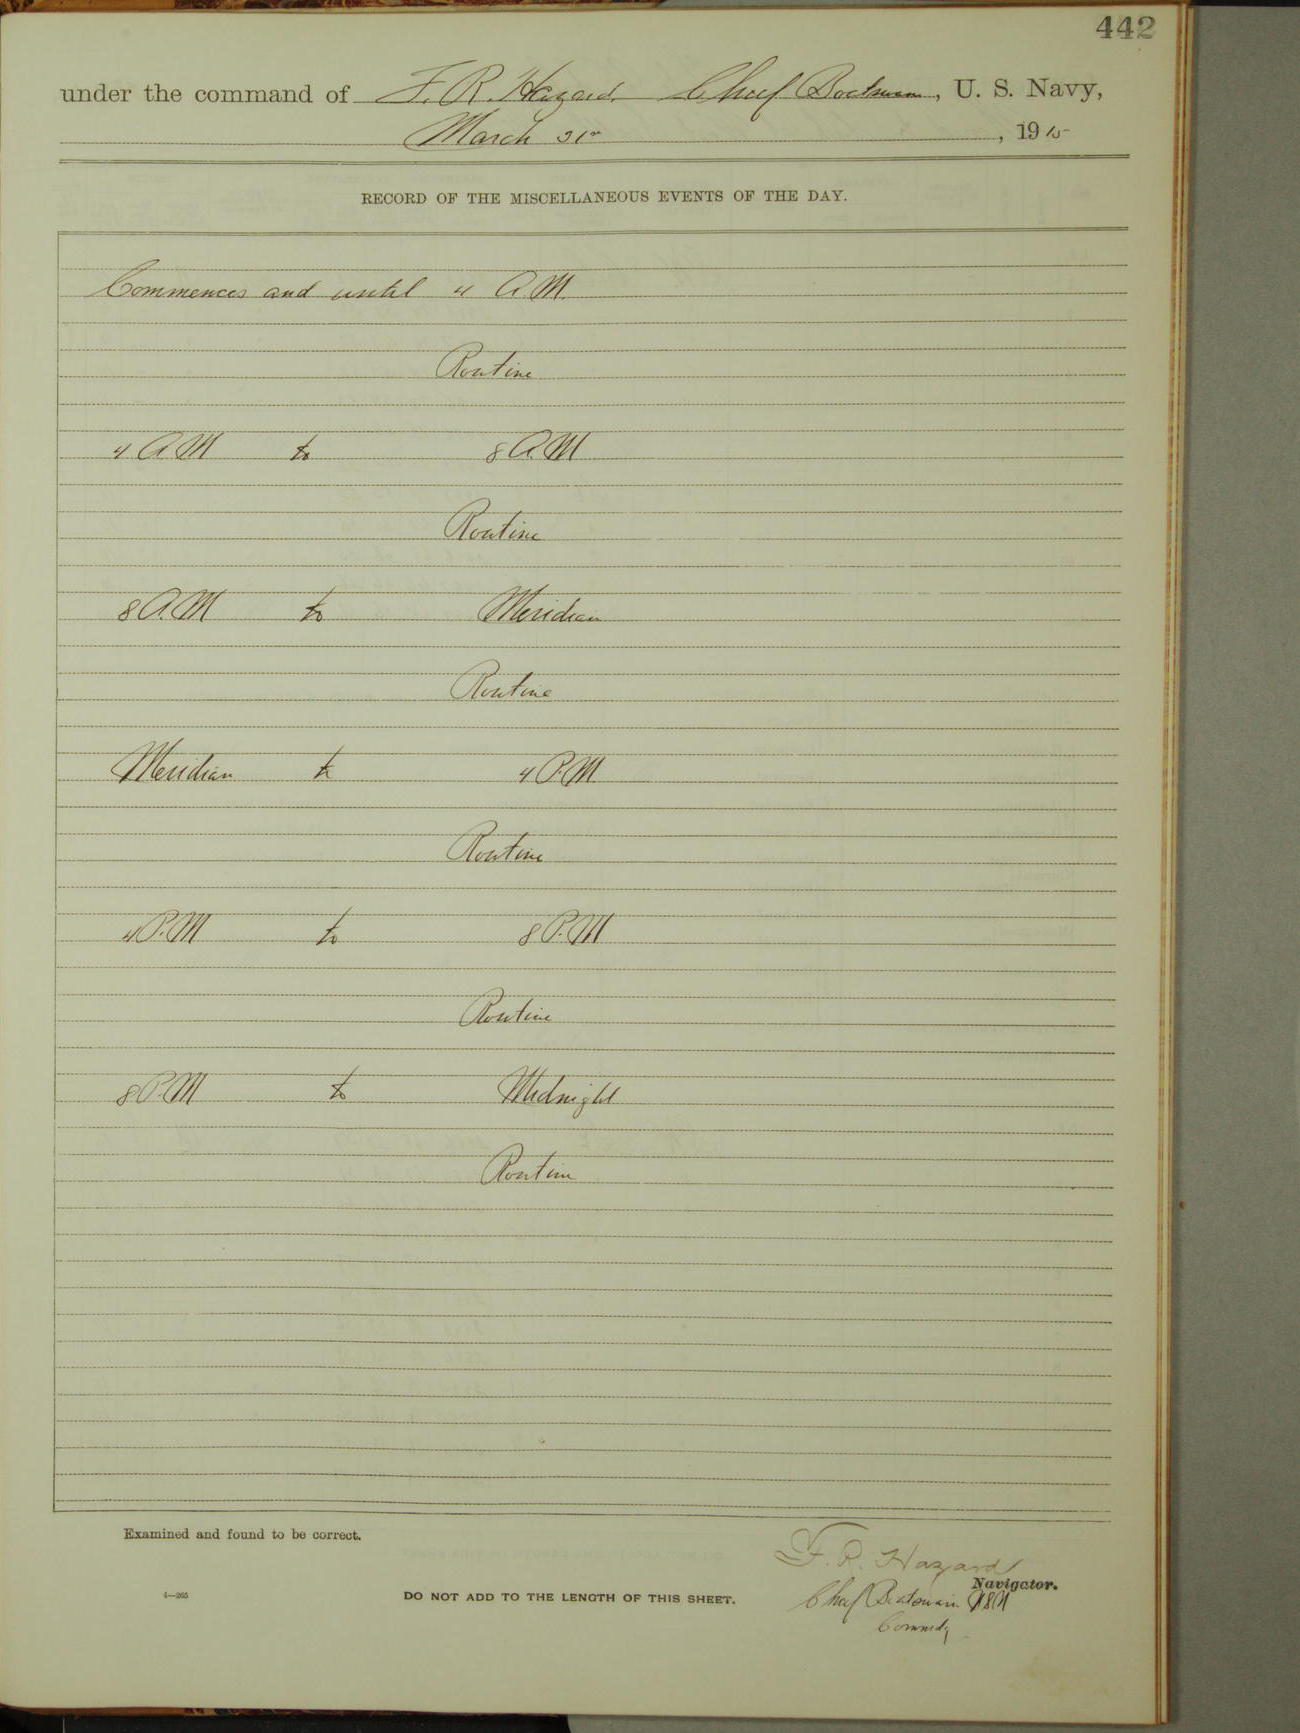 442
under the command of F. R. Hazard. Chief Boatswain, U. S. Navy,
March 31st, 1915
RECORD OF THE MISCELLANEOUS EVENTS OF THE DAY.
Commences and until 4 A.M.
Routine
4 A.M to 8 A.M
Routine
8 A.M to Meridian
Routine
Meridian to 4 P.M
Routine
4 P.M to 8 P.M
Routine
8 P.M to Midnight
Routine
Examined and found to be correct.
F. R. Hazard
Navigator.
4—265 DO NOT ADD TO THE LENGTH OF THIS SHEET. Chief Boatswain USN
Commdg